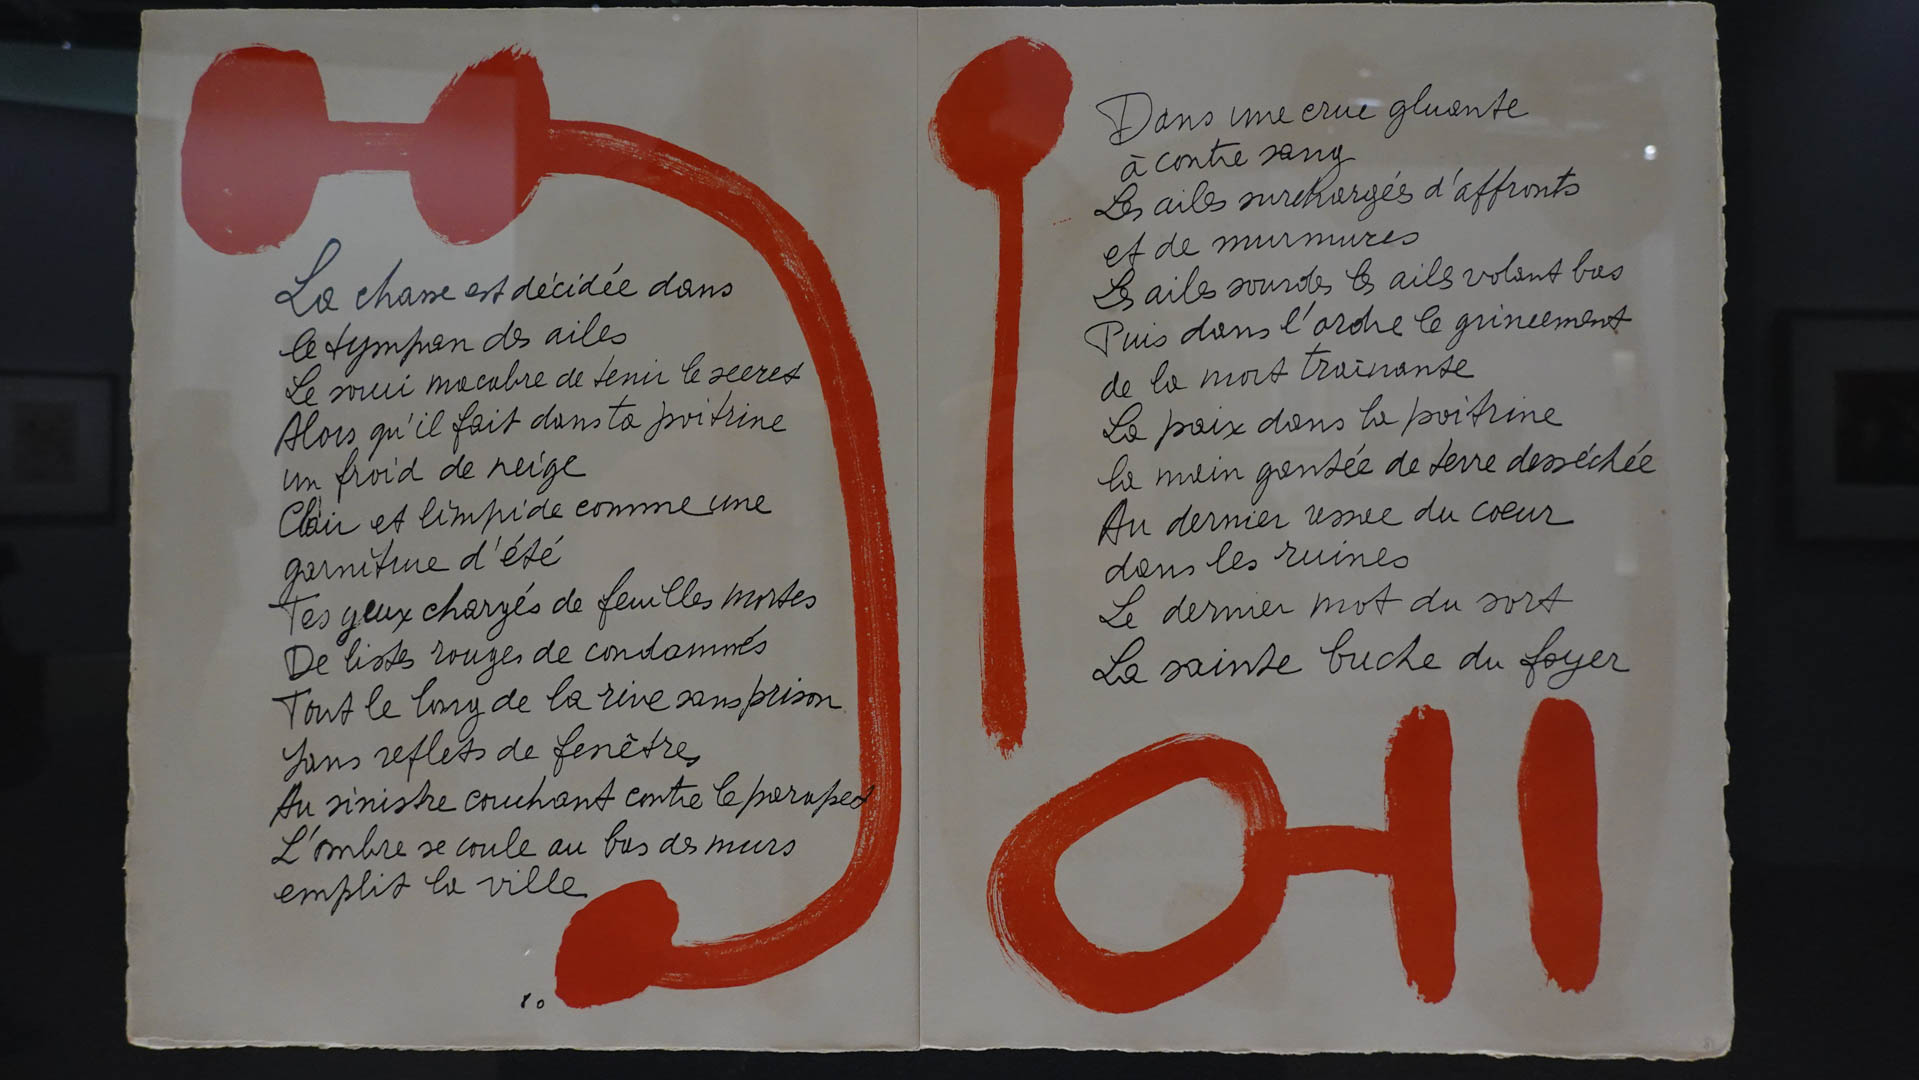 La chasse est décidée dans
le tympan des ailes
Le souci macabre de tenir le secret
Alors qu'il fait dans ta poitrine
un froid de neige
Clair et limpide comme une
garniture d'été
Tes yeux chargés de feuilles mortes
De listes rouges de condamnés
Tout le long de la rive sans prison
Sans reflets de fenêtres
Au sinistre couchant contre le parapet
L'ombre se coule au bas des murs
emplit la ville
80
Dans une crue gluante
à contre sang
Les ailes surchargés d'affronts
et de murmures
Les ailes sourdes les ailes volant bas
Puis dans l'ordre le grincement
de la mort traînante
La paix dans la poitrine
la main gantée de terre desséchée
Au dernier ressac du coeur
dans les ruines
Le dernier mot du sort
La sainte buche du foyer